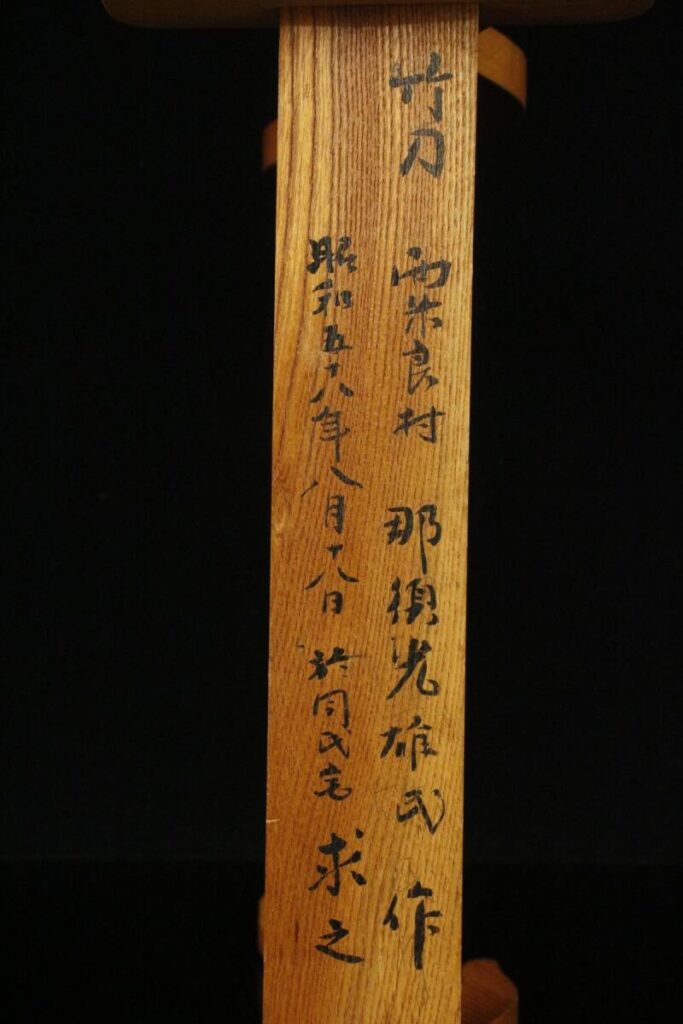 竹刀 西米良村 那須光雄氏 作
昭和五十八年八月十八日 於同氏宅 求之